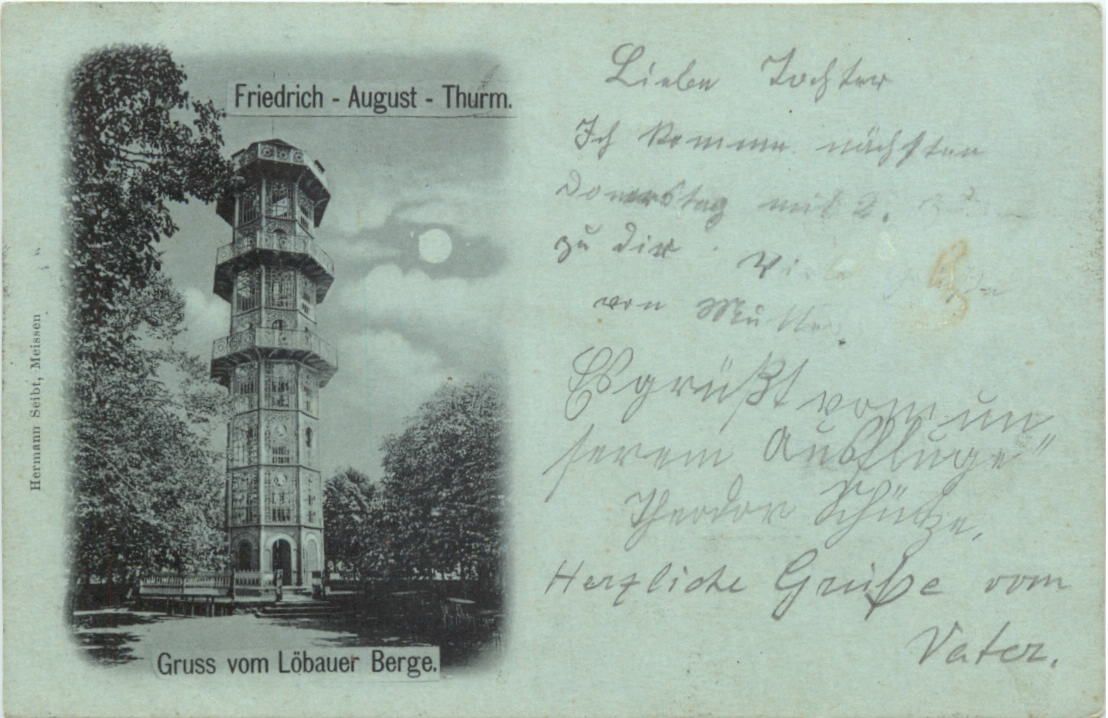 Friedrich - August - Thurm.
Gruss vom Löbauer Berge.
Hermann Seibt, Meissen
Liebe Tochter
Ich komme nächsten
Donerstag mit 2.
zu dir. Viele
von Mutter.
Es grüßt vom un
serem Ausfluge"
Theodor Schütze.
Herzliche Grüße vom
Vater.